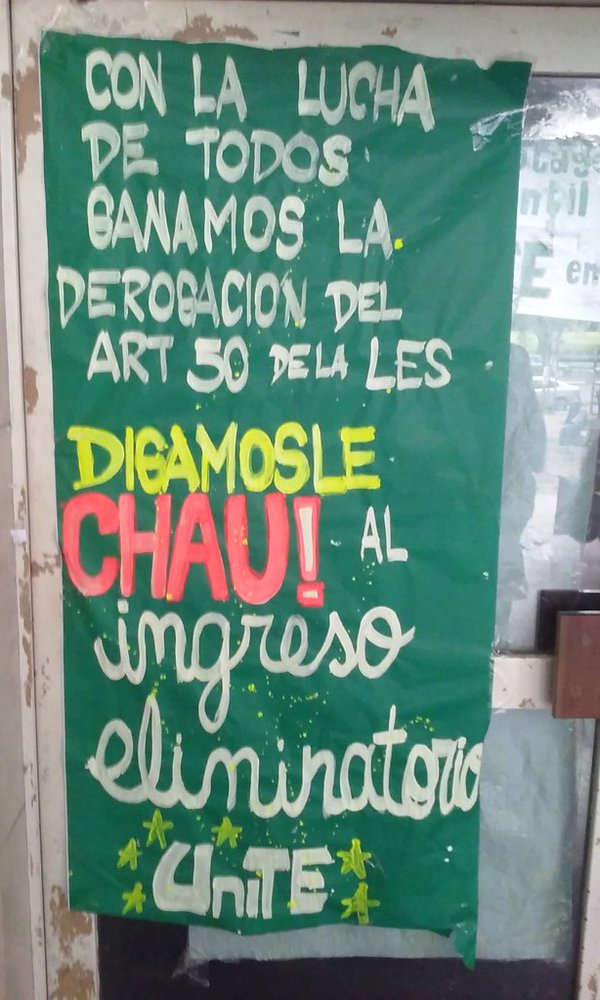 CON LA LUCHA
DE TODOS
GANAMOS LA
DEROGACION DEL
ART 50 DE LA LES
DIGAMOSLE
CHAU! AL
ingreso
eliminatorio
UniTE
en